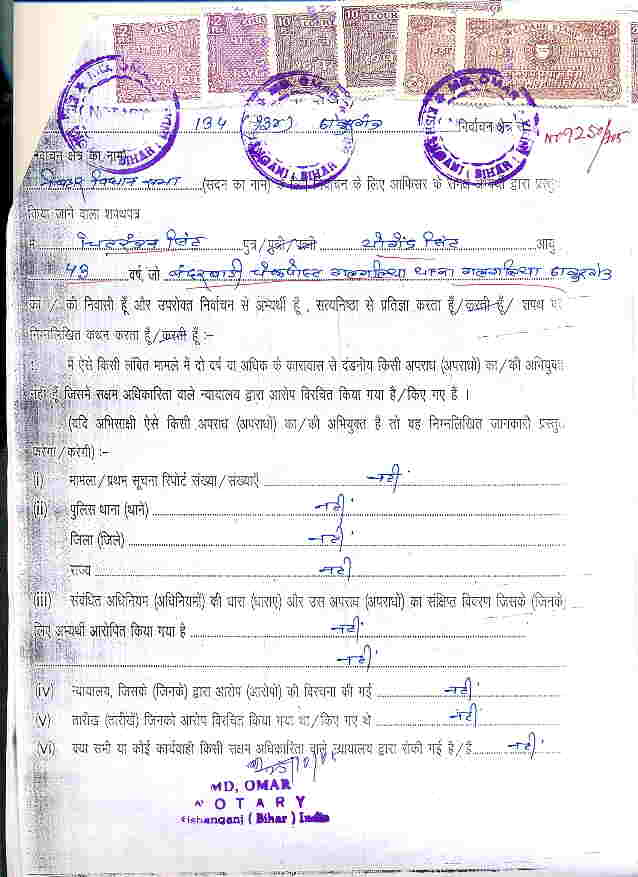 MD. OMAR
NOTARY
( BIHAR )
MD. OMAR
(BIHAR)
MD. OMAR
(BIHAR)
134 निर्वाचन क्षेत्र
No 9250/205
निर्वाचन क्षेत्र का नाम
बिहार विधान सभा (सदन का नाम) के लिए निर्वाचन के लिए आफिसर के समक्ष अभ्यर्थी द्वारा प्रस्तुत
किया जाने वाला शपथपत्र
चितरंजन सिंह पुत्र/पुत्री/पत्नी योगेंद्र सिंह आयु
43 वर्ष, जो बंदरबाड़ी चेकपोस्ट गलगलिया थाना गलगलिया ठाकुरगंज
का / की निवासी हूँ और उपरोक्त निर्वाचन से अभ्यर्थी हूँ , सत्यनिष्ठा से प्रतिज्ञा करता हूँ/करती हूँ/ शपथ पर
निम्नलिखित कथन करता हूँ/करती हूँ :-
1. मैं ऐसे किसी लंबित मामले में दो वर्ष या अधिक के कारावास से दंडनीय किसी अपराध (अपराधों) का/की अभियुक्त
नहीं हूँ, जिसमें सक्षम अधिकारिता वाले न्यायालय द्वारा आरोप विरचित किया गया है/किए गए हैं ।
(यदि अभिसाक्षी ऐसे किसी अपराध (अपराधों) का/की अभियुक्त है तो वह निम्नलिखित जानकारी प्रस्तुत
करेगा/करेगी) :-
(i) मामला/प्रथम सूचना रिपोर्ट संख्या/संख्याएँ नहीं
(ii) पुलिस थाना (थाने) नहीं
जिला (जिले) नहीं
राज्य नहीं
(iii) संबंधित अधिनियम (अधिनियमों) की धारा (धाराएं) और उस अपराध (अपराधों) का संक्षिप्त विवरण जिसके (जिनके)
लिए अभ्यर्थी आरोपित किया गया है नहीं
नहीं
(iv) न्यायालय, जिसके (जिनके) द्वारा आरोप (आरोपों) की विरचना की गई नहीं
(v) तारीख (तारीखें) जिनको आरोप विरचित किया गया था/किए गए थे नहीं
(vi) क्या सभी या कोई कार्यवाही किसी सक्षम अधिकारिता वाले न्यायालय द्वारा रोकी गई है/हैं नहीं
MD, OMAR
NOTARY
Kishanganj ( Bihar ) India